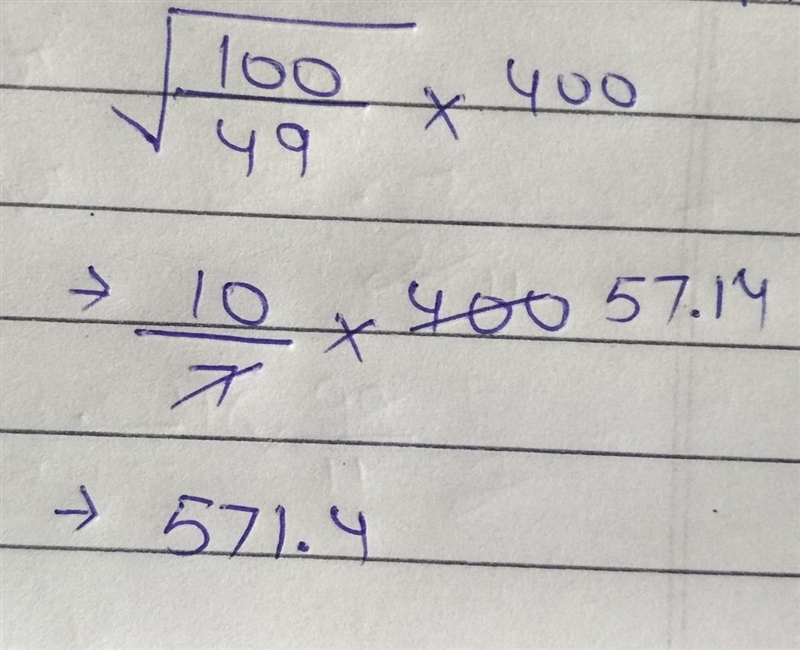 √100/49 × 400
→ 10/7 × 400 57.14
→ 571.4